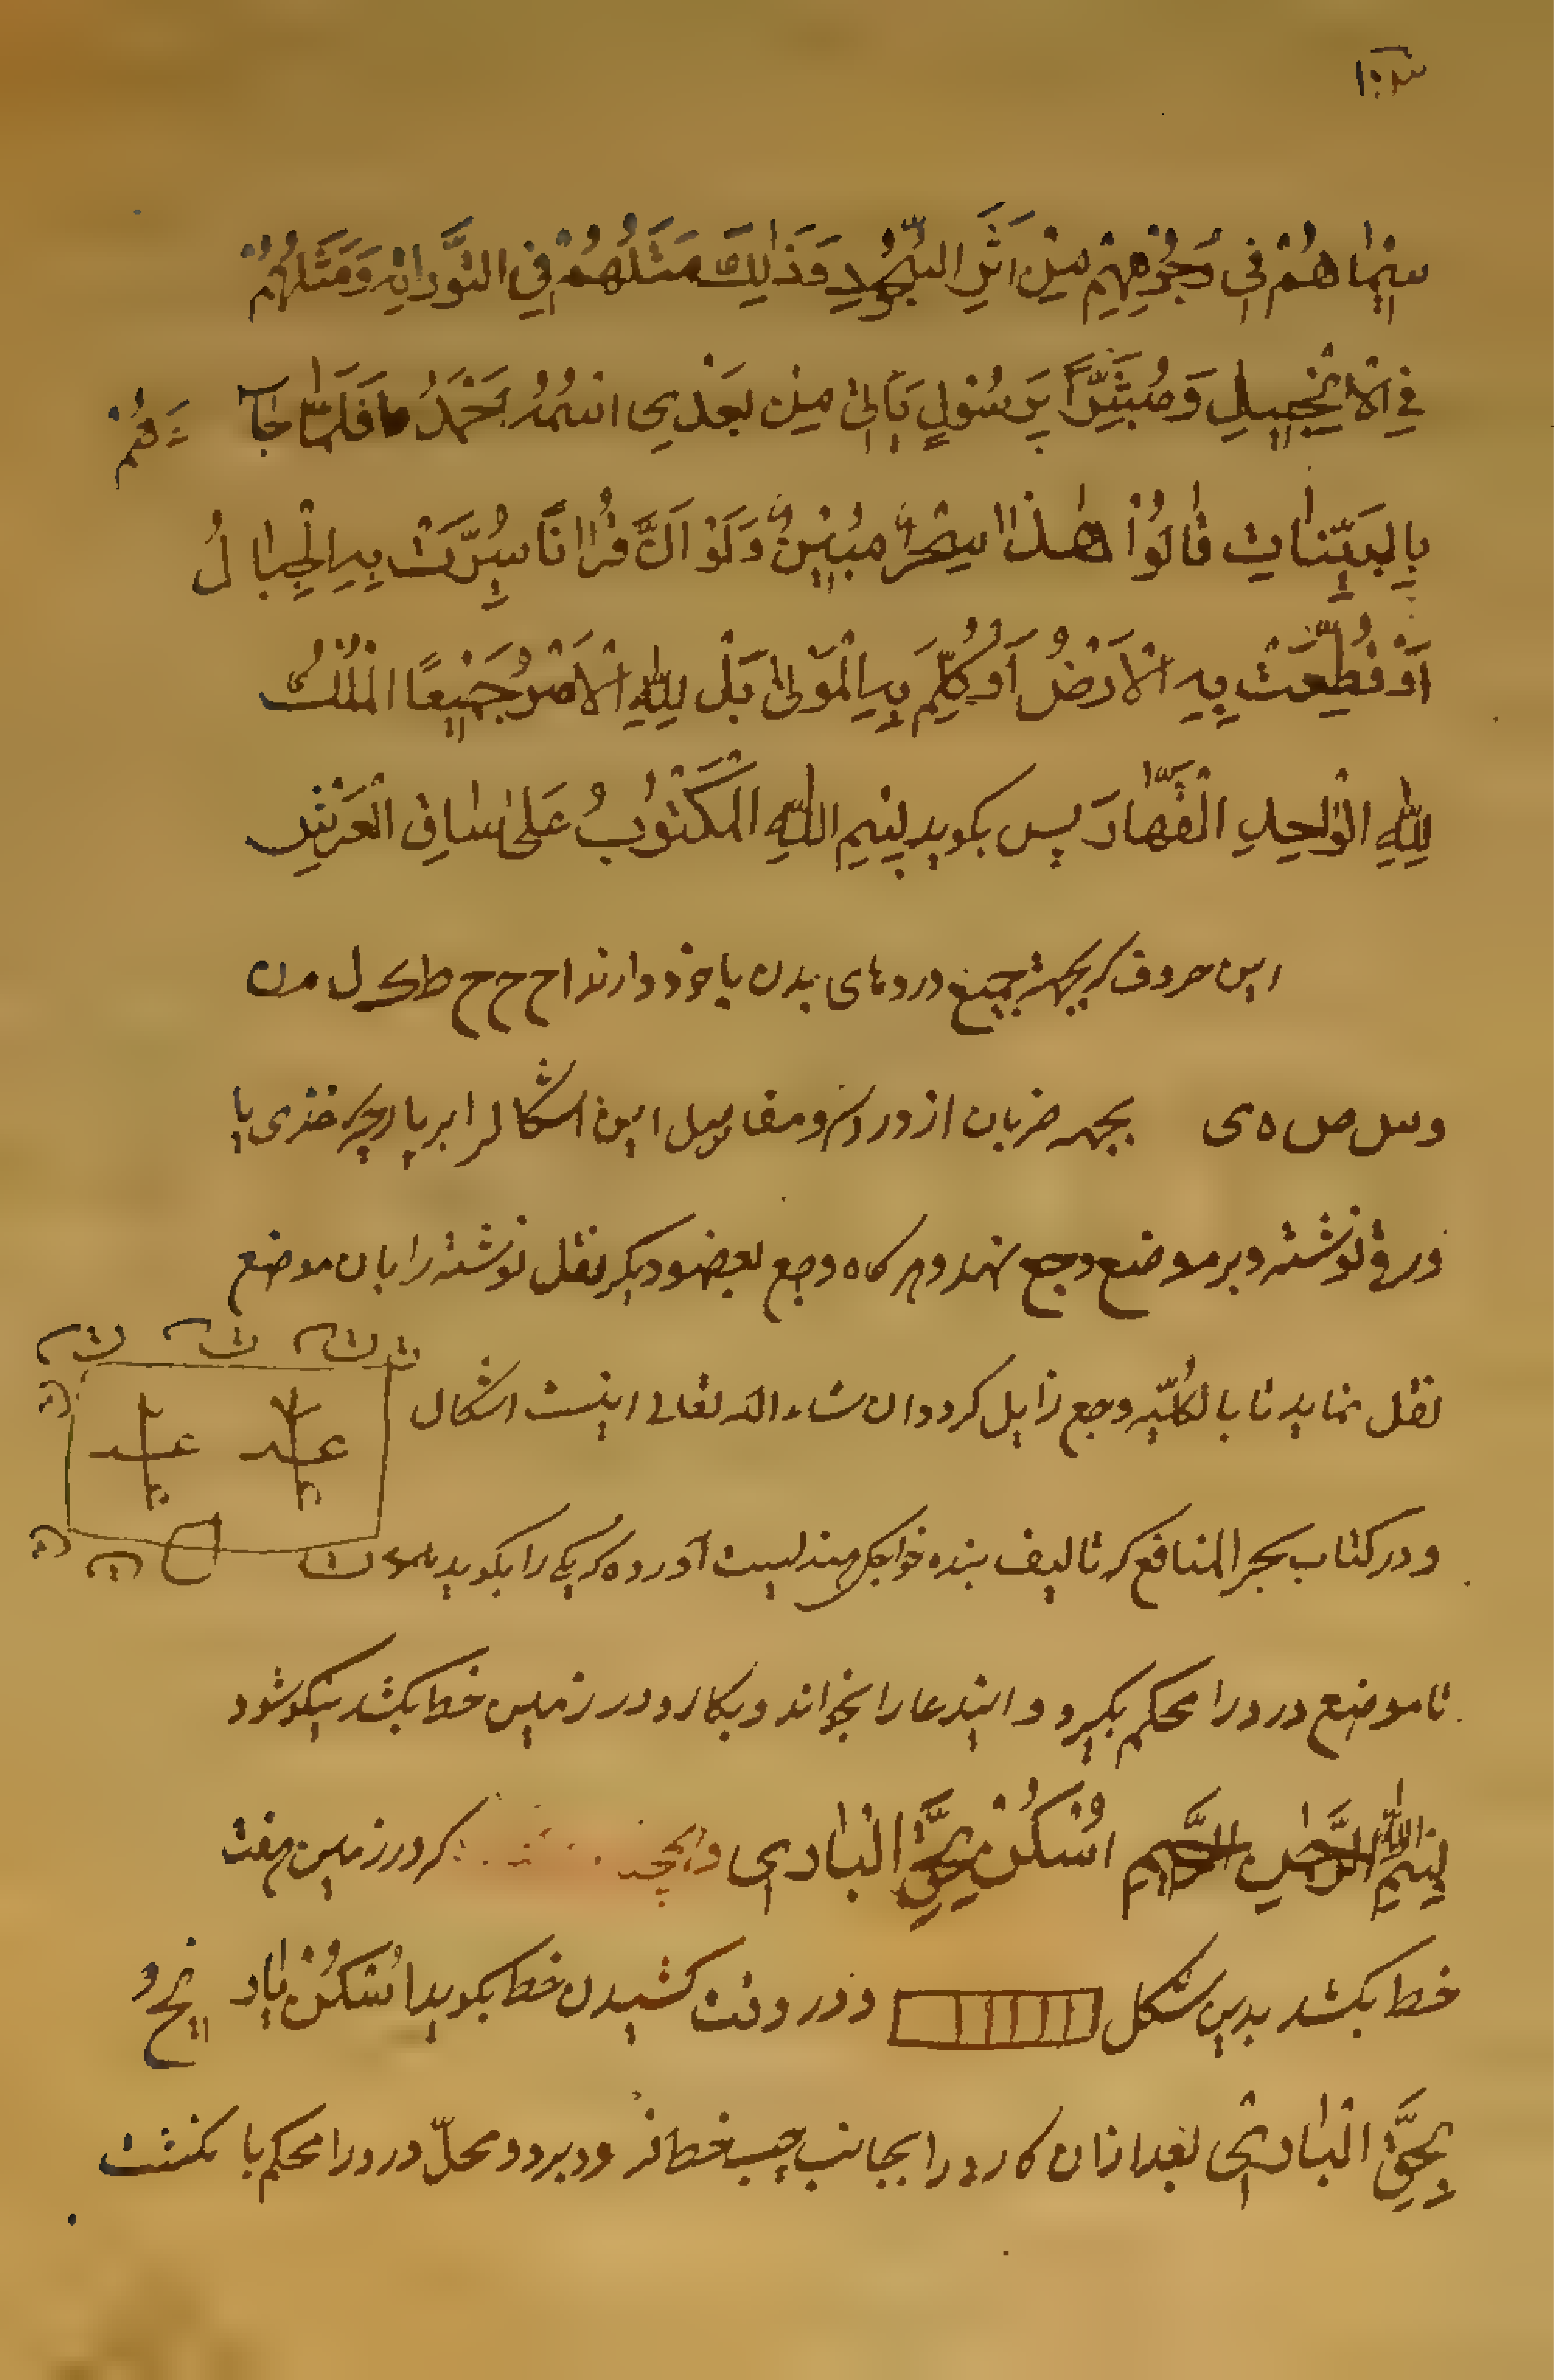 ۱۰۳
سِیْمٰا هُمْ فِیْ وُجُوْهِهِمْ مِنْ اَثَرِ السُّجُوْدِ وَذٰالِكَ مَثَلُهُمْ فِی التَّوْرٰایةِ وَمَثَلُهُمْ
فِی الْاِنْجِیلِ وَمُبَشِّرًا بِرَسُوْلٍ یَأْتِیْ مِنْ بَعْدِی اسْمُهُ اَحْمَدُ فَلَمّٰا جٰآءَهُمْ
بِالْبَیِّنٰاتِ قٰالُوْا هٰذٰا سِحْرٌ مُبِیْنٌ وَلَوْ اَنَّ قُرْاٰنًا سُیِّرَتْ بِهِ الْجِبٰالُ
اَوْ قُطِّعَتْ بِهِ الْاَرْضُ اَوْ كُلِّمَ بِهِ الْمَوْتٰی بَلْ لِلّٰهِ الْاَمْرُ جَمِیْعًا الْمُلْكُ
لِلّٰهِ الْوٰاحِدِ الْقَهّٰارَ پس بکوید بِسْمِ اللّٰهِ الْمَكْتُوْبُ عَلیٰ سٰاقِ الْعَرْشِ
این حروف که بجهة جمیع دردهای بدن با خود دارند اح ح ح ط ک ل م ن
و س ص ه ی بجهه ضربان از درد و مفاصل این اشکال را بر پارچه خذی یا
ورقی نوشته و بر موضع وجع نهد و هر کاه وجع بعضو دیکر نقل نوشته را بان موضع
نقل نماید تا بالکُلّیه وجع زایل کردد ان شاء الله تعالی اینست اشکال
و در کتاب بحر المنافع که تالیف بنده خواجکی هندیست آورده که یکی را بکوید
تا موضع درد را محکم بکیرد و ایندعا را بخواند و بکارد در زمین خط بکشد نیکو شود
بِسْمِ اللّٰهِ الرَّحْمٰنِ الرَّحِیمِ اُسْكُنْ بِحَقِّ الْبٰادِی که در زمین هفت
خط بکشد بدین شکل و در وقت کشیدن خط بکوید اُسْکُنْ یٰاد یح و
بِحَقِّ الْبٰادِیْ بعد ازان کارد را بجانب چپ خط فرود برد و محلّ درد را محکم با نکشت